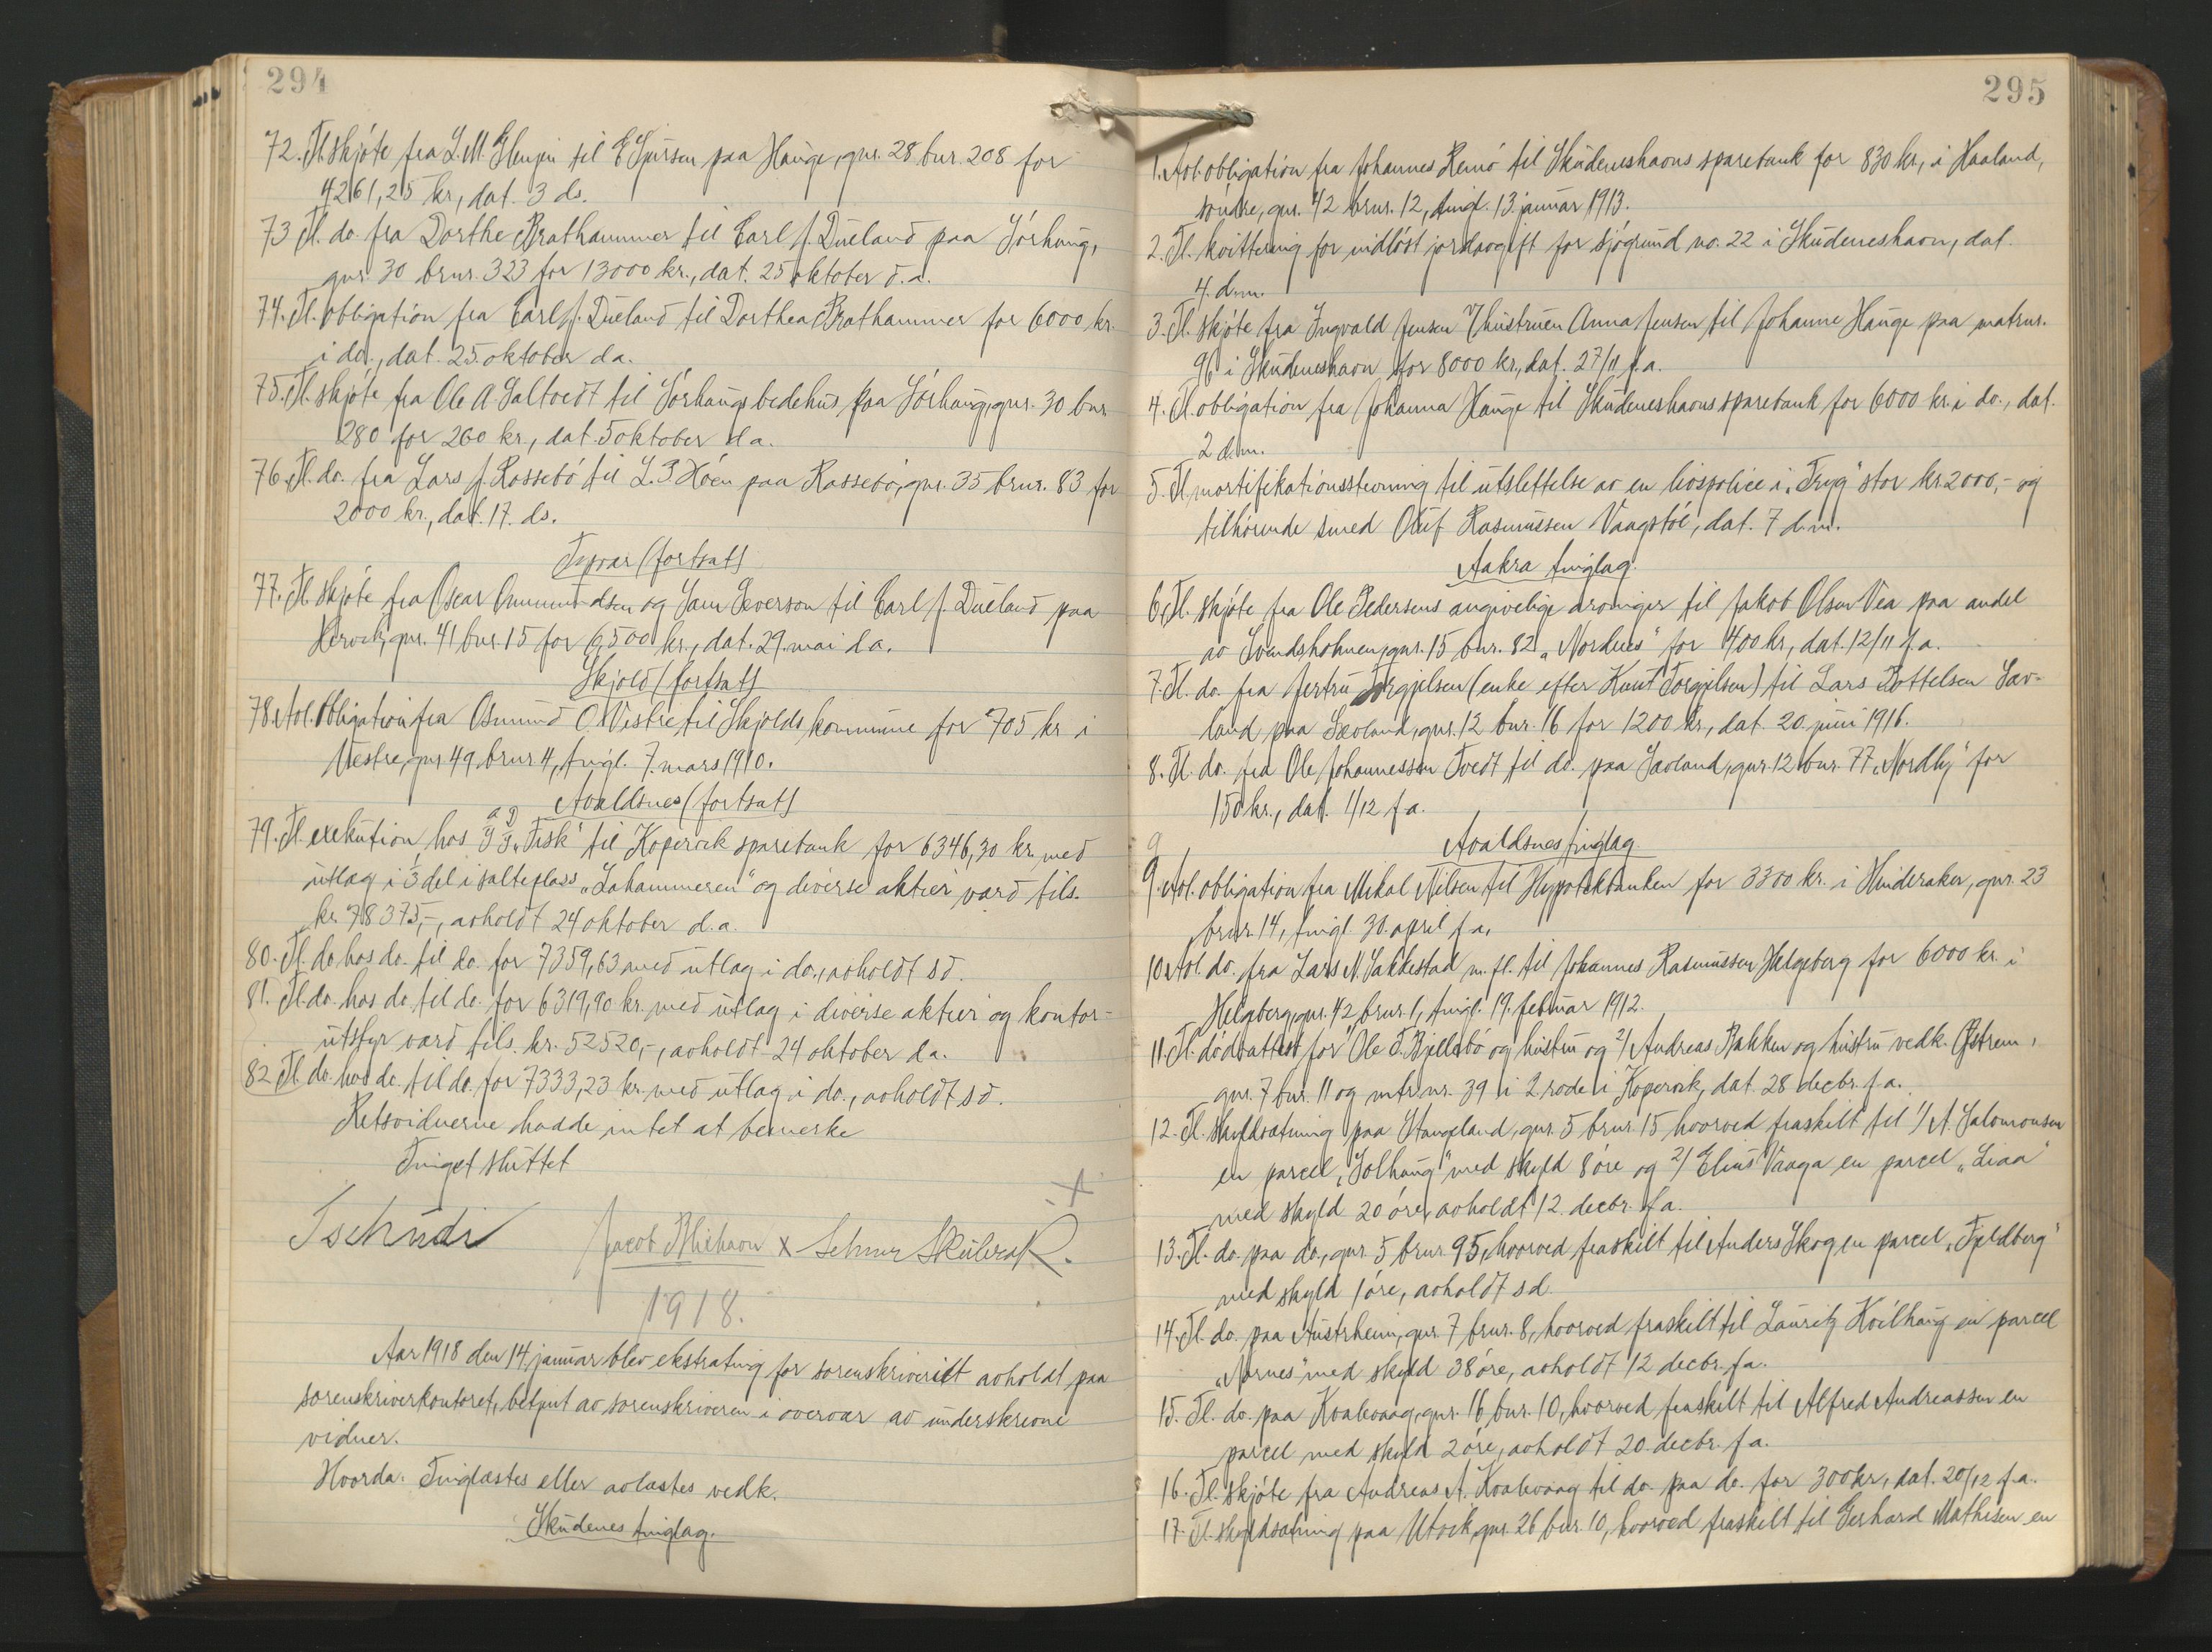 294
72. Tl. skjøte fra L. M. til E. Sjursen paa Hauge, gnr. 28 bnr. 208 for
4261,25 kr., dat. 3 ds.
73 Tl. do. fra Dorthe Brathammer til Carl J. Dueland paa Sørhaug,
gnr. 30 brnr. 323 for 13000 kr., dat. 25 oktober d.a.
74. Tl. obligation fra Carl J. Dueland til Dorthea Brathammer for 6000 kr.
i do., dat. 25. oktober d.a.
75. Tl. skjøte fra Ole A Saltvedt til Sørhaugs bedehus paa Sørhaug, gnr. 30 bnr
280 for 260 kr., dat. 5 oktober d.a.
76. Tl. do. fra Lars J. Rossebø til L. Høen paa Rossebø, gnr. 35 brnr. 83 for
2000 kr., dat. 17. ds.
Tysvær (fortsat)
77. Tl. skjøte fra Oscar Ommundsen og Sam Severson til Carl J. Dueland paa
Hervik, gnr. 41 bnr. 15 for 6,500 kr., dat. 29. mai d.a.
Skjold (fortsat)
78. Avl. obligation fra Osmund O. Vestre til Skjolds kommune for 705 kr. i
Vestre, gnr 49 brnr 4, tingl. 7. mars 1910.
Avaldsnes (fortsat)
79. Tl. exekution hos A/S D/S „Fisk“ til Kopervik sparebank for 6346,30 kr. med
utlæg i 1/3 del i salteplass „Lahammeren“ og diverse aktier værd tils.
kr. 78375,-, avholdt 24 oktober d.a.
80. Tl. do. hos do. til do. for 7359,63 med utlæg i do., avholdt s.d.
81. Tl. do. hos do. til do. for 6319,90 kr. med utlæg i diverse aktier og kontor-
utstyr værd tils. kr. 52520,-, avholdt 24 oktober d.a.
82 Tl. do. hos do. til do. for 7333,23 kr. med utlæg i do., avholdt s.d.
Retsvidnerne hadde intet at bemerke
Tinget sluttet
Tschudi Jacob x
1918.
Aar 1918 den 14 januar blev ekstrating for sorenskriveriet avholdt paa
sorenskriverkontoret, betjent av sorenskriveren i overvær av underskrevne
vidner.
Hvorda: Tinglæstes eller avlæstes vedk.
Skudenes tinglag.
295
1. Avl. obligation fra Johannes Remø til Skudeneshavns sparebank for 830 kr., i Haaland,
søndre, gnr. 42 brnr. 12, tingl. 13. januar 1913.
2. Tl. kvittering for indløst jordavgift for sjøgrund no. 22 i Skudeneshavn, dat.
4. d.m.
3. Tl. skjøte fra Ingvald Jensen & hustruen Anna Jensen til Johanne Hauge paa matrnr.
96 i Skudeneshavn for 8000 kr., dat. 27/11 f.a.
4. Tl. obligation fra Johanna Hauge til Skudeneshavns sparebank for 6000 kr. i do., dat.
2 d.m.
5. Tl. mortifikationsstevning til utslettelse av en livspolice i „Tryg“ stor kr. 2000,- og
tilhørende smed Oluf Rasmussen Vaagstøl, dat. 7 d.m.
Aakra tinglag.
6. Tl. skjøte fra Ole Pedersens angivelige arvinger til Jakob Olsen Vea paa andel
av Svendsholmen, gnr. 15 bnr. 82 „Nordnes“ for 400 kr, dat. 12/11 f.a.
7. Tl. do. fra Jertru Torgjelsen (enke efter Knut Torgjelsen) til Lars Tottelsen Sæv-
land paa Sævland, gnr. 12 bnr. 16 for 1200 kr., dat. 20. juni 1916.
8. Tl. do. fra Ole Johannessen Tvedt til do. paa Sævland, gnr. 12 bnr. 77 „Nordly“ for
150 kr., dat. 1/12 f.a.
9
Avaldsnes tinglag.
9. Avl. obligation fra Mikal Nilsen til Hypotekbanken for 3300 kr. i Hinderaker, gnr. 23
brnr. 14, tingl. 30. april f.a.
10 Avl. do. fra Lars N. Sakkestad m.fl. til Johannes Rasmussen Helgeberg for 6000 kr. i
Helgeberg, gnr. 42 brnr. 1, tingl. 19. februar 1912.
11. Tl. dødsattest for 1/ Ole T. Bjellebø og hustru og 2/ Andreas Bakken og hustru vedk. Østrem,
gnr. 7 bnr. 11 og mtr.nr. 39 i 2 rode i Kopervik, dat. 28 decbr. f.a.
12. Tl. skyldsætning paa Stangeland, gnr. 5 brnr. 15 hvorved fraskilt til 1/ A. Salomonsen
en parcel „Solhaug“ med skyld 8 øre og 2/ Elius Vaaga en parcel „Liaa“
med skyld 20 øre, avholdt 12. decbr. f.a.
13. Tl. do. paa do., gnr. 5 brnr. 95, hvorved fraskilt til Anders Skog en parcel „Fjeldberg“
med skyld 1 øre, avholdt s.d.
14. Tl. do. paa Austrheim, gnr. 7 brnr. 8, hvorved fraskilt til Lauritz Kvilhaug en parcel
„Nornes“ med skyld 38 øre, avholdt 12 decbr. f.a.
15. Tl. do. paa Kvalevaag, gnr. 16 bnr. 10, hvorved fraskilt til Alfred Andreassen en
parcel med skyld 2 øre, avholdt 20. decbr. f.a.
16. Tl. skjøte fra Andreas A. Kvalevaag til do. paa do. for 300 kr., dat. 20/12 f.a.
17. Tl. skyldsætning paa Utvik, gnr. 26 bnr. 10, hvorved fraskilt til Gerhard Mathisen en